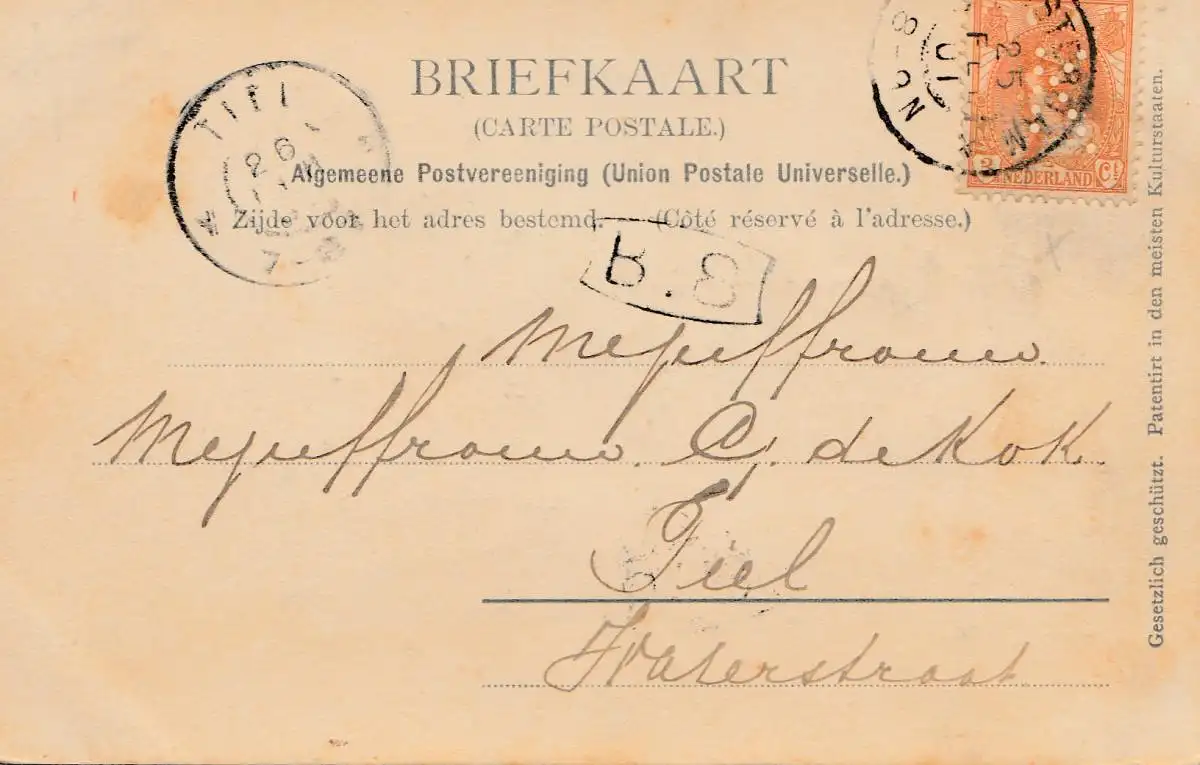 BRIEFKAART
(CARTE POSTALE.)
Algemeene Postvereeniging (Union Postale Universelle.)
Zijde voor het adres bestemd. (Côté réservé à l'adresse.)
TIEL
26
7-8
8-9
25
FEB
01
NEDERLAND
3 Ct
B.S
Mejuffrouw.
Mejuffrouw. C. de Kok.
Tiel
Waterstraat
Gesetzlich geschützt. Patentirt in den meisten Kulturstaaten.